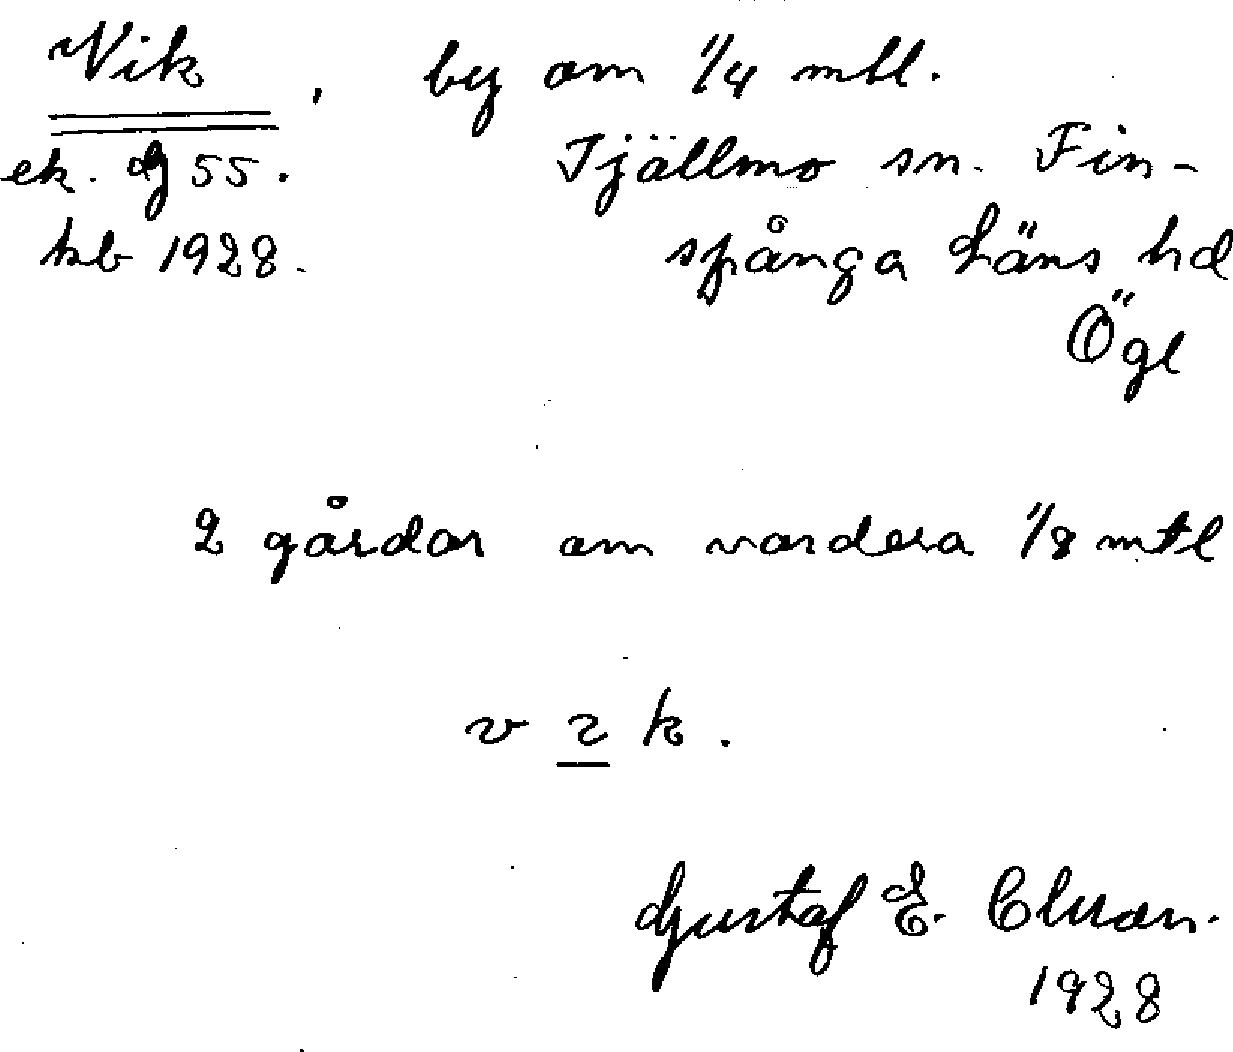 Vik, by om 1/4 mtl.
ek. bl 55. Tjällmo sn. Fin-
kb 1928. spånga Läns hd
Ögl
2 gårdar om vardera 1/8 mtl
v i k.
Gustaf E.
1928